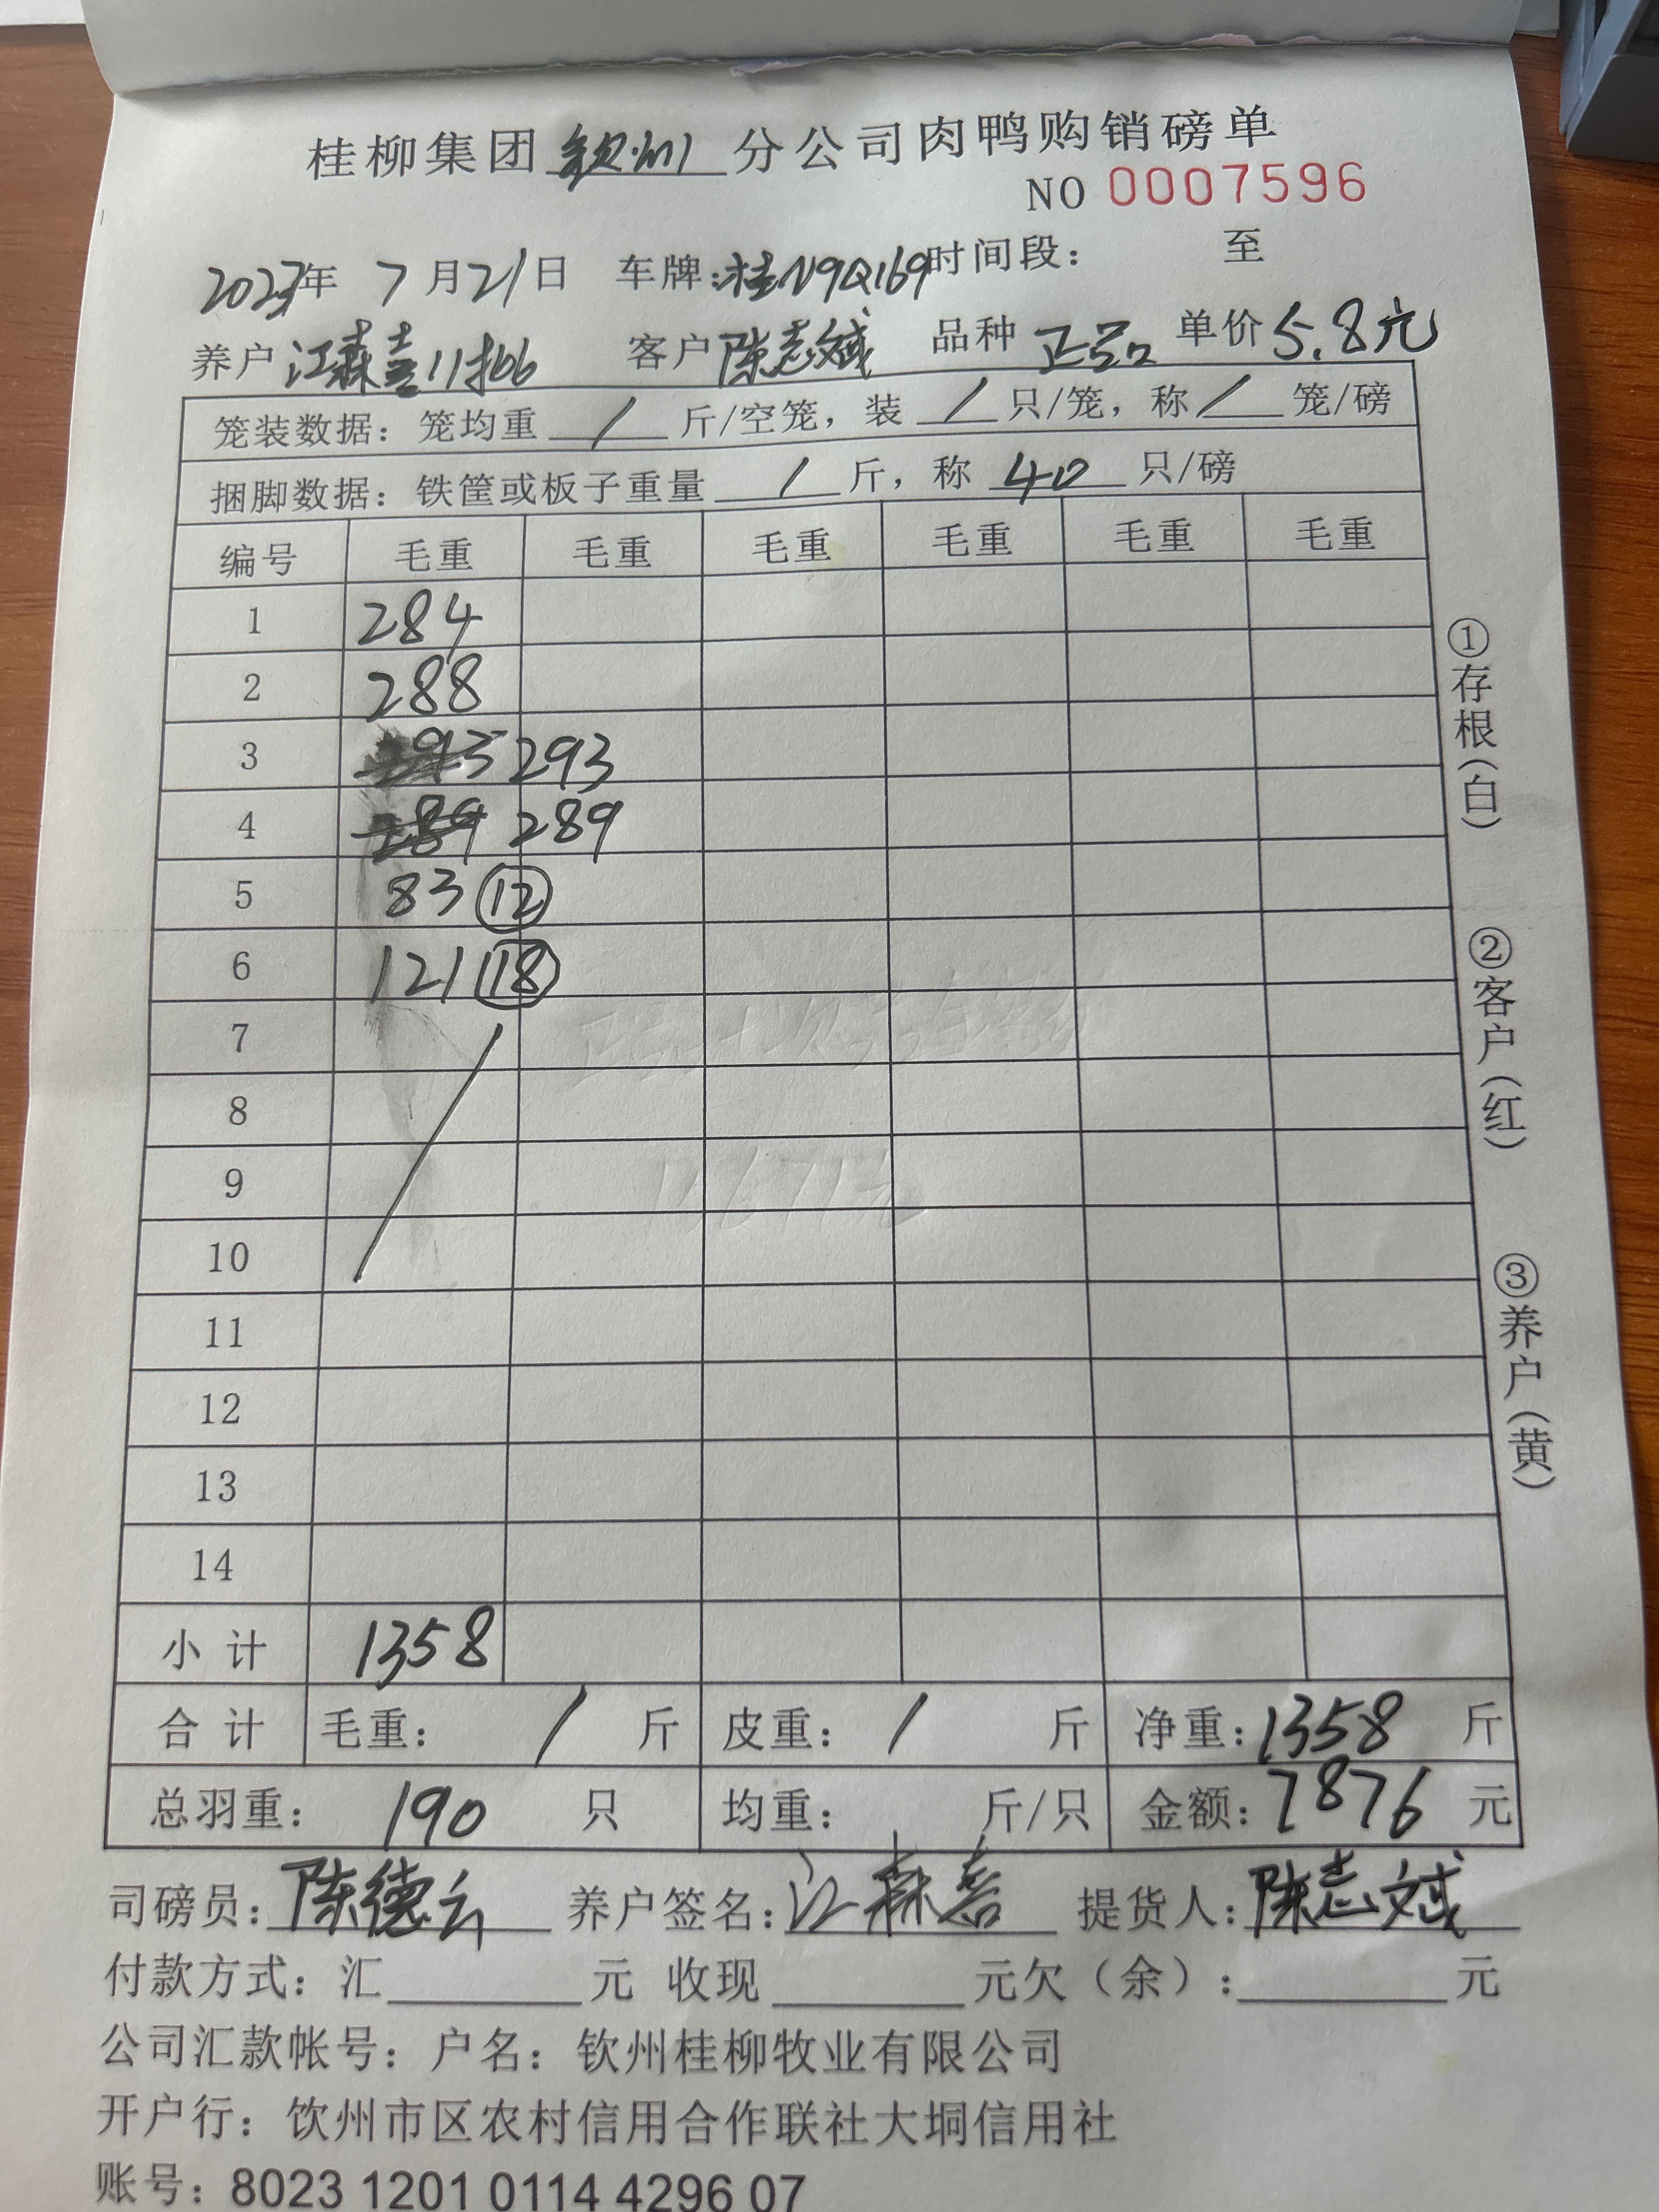 桂柳集团钦州分公司肉鸭购销磅单
NO 0007596
2023年 7月21日 车牌:桂N9Q169 时间段: 至
养户 江森喜11批 客户 陈志斌 品种 正品 单价 5.8元
笼装数据:笼均重 / 斤/空笼,装 / 只/笼,称 / 笼/磅
捆脚数据:铁筐或板子重量 / 斤,称 40 只/磅
编号 毛重 毛重 毛重 毛重 毛重 毛重
1 284
2 288
3 293 293
4 289 289
5 83 ⑫
6 121 ⑱
7
8
9
10
11
12
13
14
小计 1358
合计 毛重: / 斤 皮重: / 斤 净重:1358 斤
总羽重: 190 只 均重: 斤/只 金额:7876 元
司磅员:陈德云 养户签名:江森喜 提货人:陈志斌
付款方式:汇 元 收现 元欠(余): 元
公司汇款帐号:户名:钦州桂柳牧业有限公司
开户行:饮州市区农村信用合作联社大垌信用社
账号:8023 1201 0114 4296 07
①存根(白)
②客户(红)
③养户(黄)